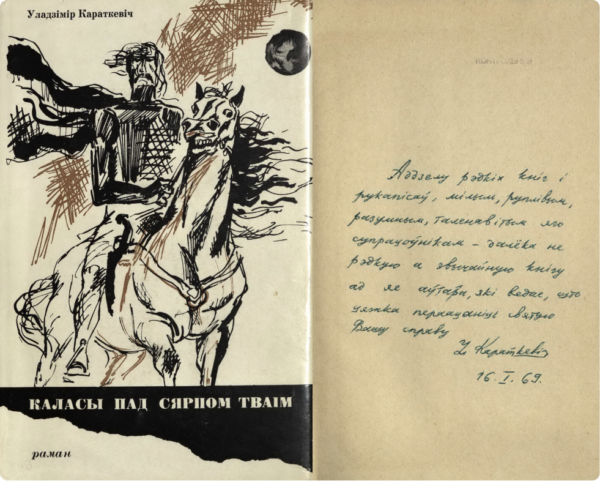 Уладзімір Караткевіч
КАЛАСЫ ПАД СЯРПОМ ТВАІМ
раман
Аддзелу рэдкіх кніг і
рукапісаў, мілым, руплівым,
разумным, таленавітым яго
супрацоўнікам – далёка не
рэдкую а звычайную кнігу
ад яе аўтара, які ведае, што
цяжка пераацаніць святую
Вашу справу
Ул Караткевіч
16. I. 69.